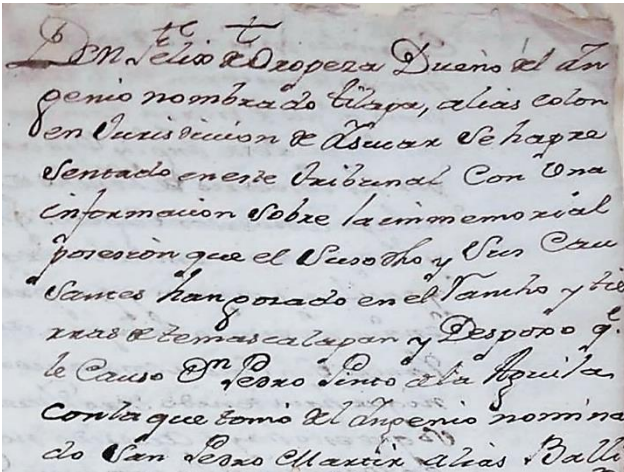 Dn Felix de Oropeza Dueño del In
genio nombrado tilapa, alias colon
en Jurisdiccion de Ysucar Se ha pre
sentado en este Tribunal Con Una
informacion Sobre la inmemorial
posesion que el Susodho y Sus Cau
Santes han gosado en el Rancho y tie
rras de temascalapan y Despoxo q.e
le Causo Dn Pedro Pinto de la Aguila
con la que tomó del Ingenio nomina
do San Pedro Martir alias Balli